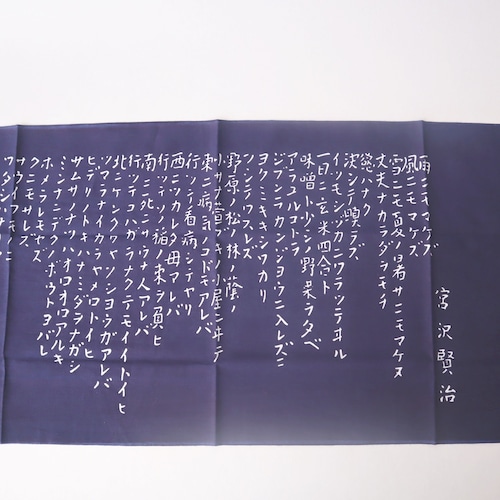 宮沢賢治
雨ニモマケズ
風ニモマケズ
雪ニモ夏ノ暑サニモマケヌ
丈夫ナカラダヲモチ
慾ハナク
決シテ瞋ラズ
イツモシヅカニワラッテヰル
一日ニ玄米四合ト
味噌ト少シノ野菜ヲタベ
アラユルコトヲ
ジブンヲカンジョウニ入レズニ
ヨクミキキシワカリ
ソシテワスレズ
野原ノ松ノ林ノ蔭ノ
小サナ萱ブキノ小屋ニヰテ
東ニ病気ノコドモアレバ
行ッテ看病シテヤリ
西ニツカレタ母アレバ
行ッテソノ稲ノ束ヲ負ヒ
南ニ死ニサウナ人アレバ
行ッテコハガラナクテモイイトイヒ
北ニケンクヮヤソショウガアレバ
ツマラナイカラヤメロトイヒ
ヒデリノトキハナミダヲナガシ
サムサノナツハオロオロアルキ
ミンナニデクノボウトヨバレ
ホメラレモセズ
クニモサレズ
サウイフモノニ
ワタシハナリ